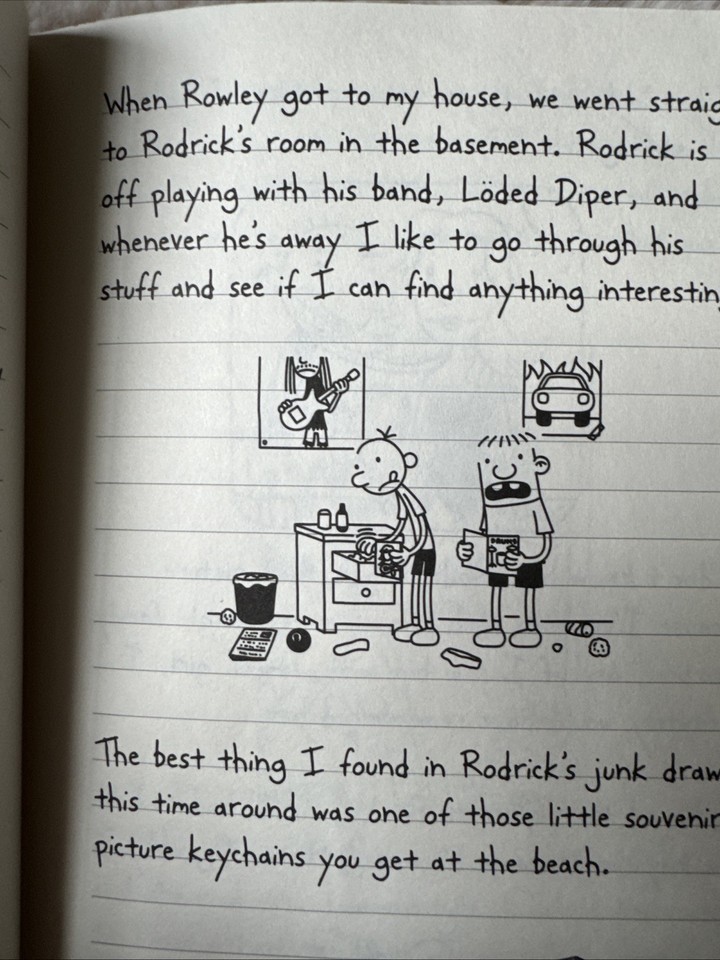 When Rowley got to my house, we went straig
to Rodrick's room in the basement. Rodrick is
off playing with his band, Löded Diper, and
whenever he's away I like to go through his
stuff and see if I can find anything interestin
DRUMS
The best thing I found in Rodrick's junk draw
this time around was one of those little souvenir
picture keychains you get at the beach.